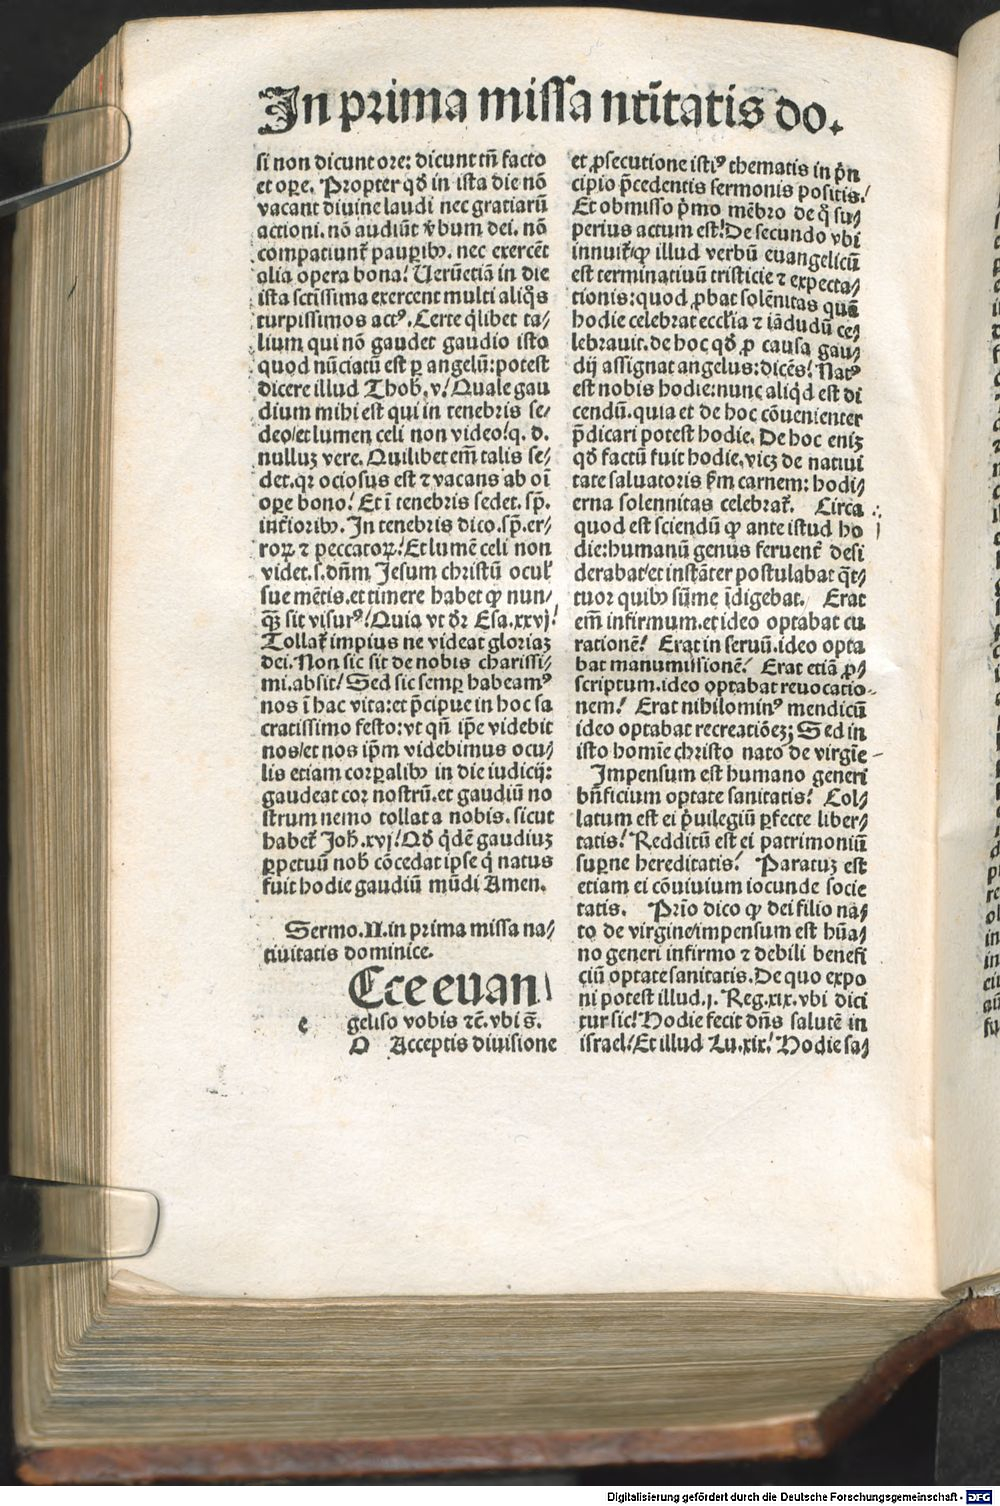 In prima missa nt̄itatis do.
si non dicunt ore: dicunt tn̄ facto
et oꝑe. Propter qđ in ista die nō
vacant diuine laudi nec gratiarū
actioni. nō audiūt v̓bum dei. nō
compatiunt᷑ pauꝑibꝰ. nec exercēt
alia opera bona/ Ueruē̄tiā in die
ista sctīssima exercent multi aliq̄s
turpissimos actꝰ. Certe q̄libet ta⸗
lium qui nō gaudet gaudio isto
quod nūciatū est ꝑ angelū: potest
dicere illud Thob. v/ Quale gau
dium mihi est qui in tenebris se⸗
deo/et lumen celi non video/q. d.
nulluꝫ vere. Quilibet em̄ talis se⸗
det. qꝛ ociosus est ⁊ vacans ab oī
oꝑe bono/ Et ī tenebris sedet. sp̄.
int̓ioribꝰ. In tenebris dico. sp̄. er⸗
roꝝ ⁊ peccatoꝝ/ Et lumē celi non
videt. s. dn̄m Jesum christū ocul᷑
sue mētis. et timere habet ꝙ nun⸗
q̄ꝫ sit visurꝰ/ Quia vt dꝛ Esa. xxvj/
Tollat᷑ impius ne videat gloriaꝫ
dei. Non sic sit de nobis charissi⸗
mi. absit/ Sed sic semꝑ habeamꝰ
nos ī hac vita: et p̄cipue in hoc sa
cratissimo festo: vt qn̄ ip̄e videbit
nos/et nos ip̄m videbimus ocu⸗
lis etiam corꝑalibꝰ in die iudicij:
gaudeat cor nostrū. et gaudiū no
strum nemo tollat a nobis. sicut
habet᷑ Joh. xvj/ Qđ q̄dē gaudiuꝫ
ꝑpetuū nob̄ cōcedat ipse q̄ natus
fuit hodie gaudiū mūdi Amen.
Sermo. II. in prima missa na⸗
tiuitatis dominice.
e Cce euan⸗
geliso vobis ⁊c̄. vbi s̄.
O Acceptis diuisione
et ꝓsecutione istiꝰ thematis in p̄n
cipio p̄cedentis sermonis positis/
Et obmisso p̄mo mēbro de q̄ su⸗
perius actum est/ De secundo vbi
innuit᷑ ꝙ illud verbū euangelicū
est terminatiuū tristicie ⁊ expecta⸗
tionis: quod ꝓbat solēnitas quā
hodie celebrat eccl̄ia ⁊ iādudū ce⸗
lebrauit. de hoc qđ ꝓ causa gau⸗
dij assignat angelus: dicēs/ Natꝰ
est nobis hodie: nunc aliq̄d est di
cendū. quia et de hoc cōuenienter
p̄dicari potest hodie. De hoc eniꝫ
qđ factū fuit hodie. vicꝫ de natiui
tate saluatoris ẜm carnem: hodi⸗
erna solennitas celebrat᷑. Circa
quod est sciendū ꝙ ante istud ho
die: humanū genus feruent᷑ desi
derabat/et instāter postulabat q̄t⸗
tuor quibꝰ sūme īdigebat. Erat
em̄ infirmum. et ideo optabat cu
rationē/ Erat in seruū. ideo opta
bat manumissionē/ Erat etiā ꝓ⸗
scriptum. ideo optabat reuocatio⸗
nem/ Erat nihilominꝰ mendicū
ideo optabat recreatiōeꝫ; Sed in
isto homīe christo nato de virgīe
Impensum est humano generi
bn̄ficium optate sanitatis/ Col⸗
latum est ei p̄uilegiū ꝑfecte liber⸗
tatis/ Redditū est ei patrimoniū
suꝑne hereditatis/ Paratuꝫ est
etiam ei cōuiuium iocunde socie
tatis. Prīo dico ꝙ dei filio na⸗
to de virgine/impensum est hūa⸗
no generi infirmo ⁊ debili benefi
ciū optate sanitatis. De quo expo
ni potest illud. j. Reg. xix. vbi dici
tur sic/ Hodie fecit dn̄s salutē in
israel/ Et illud Lu. xix/ Hodie sa⸗
Digitalisierung gefördert durch die Deutsche Forschungsgemeinschaft - DFG